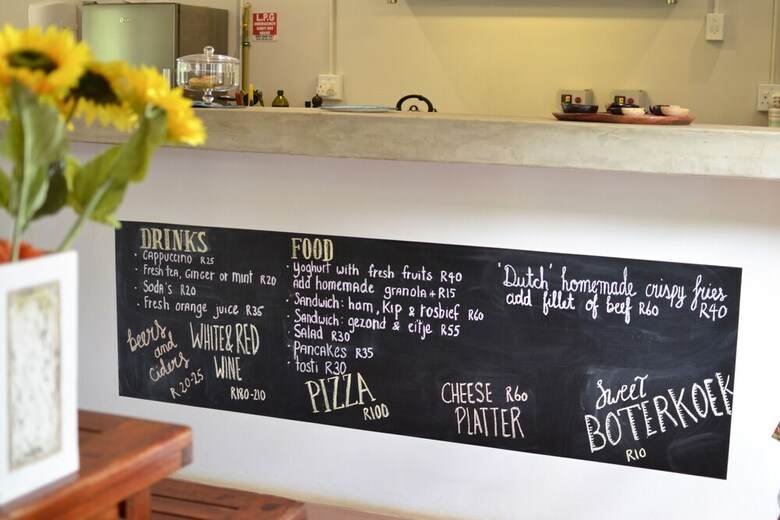 L.P.G
DRINKS
· Cappuccino R25
· Fresh tea, Ginger or mint R20
· Soda's R20
· Fresh orange juice R35
beers
and
Ciders
R.20-25
WHITE & RED
WINE
R180-210
FOOD
· Yoghurt with fresh fruits R40
Add homemade granola + R15
· Sandwich: ham, Kip & rosbief R60
· Sandwich: gezond & eitje R55
· Salad R30
· Pancakes R35
· Tosti R30
PIZZA
R100
'Dutch' homemade crispy fries
R40
add fillet of beef R60
CHEESE R60
PLATTER
Sweet
BOTERKOEK
R10